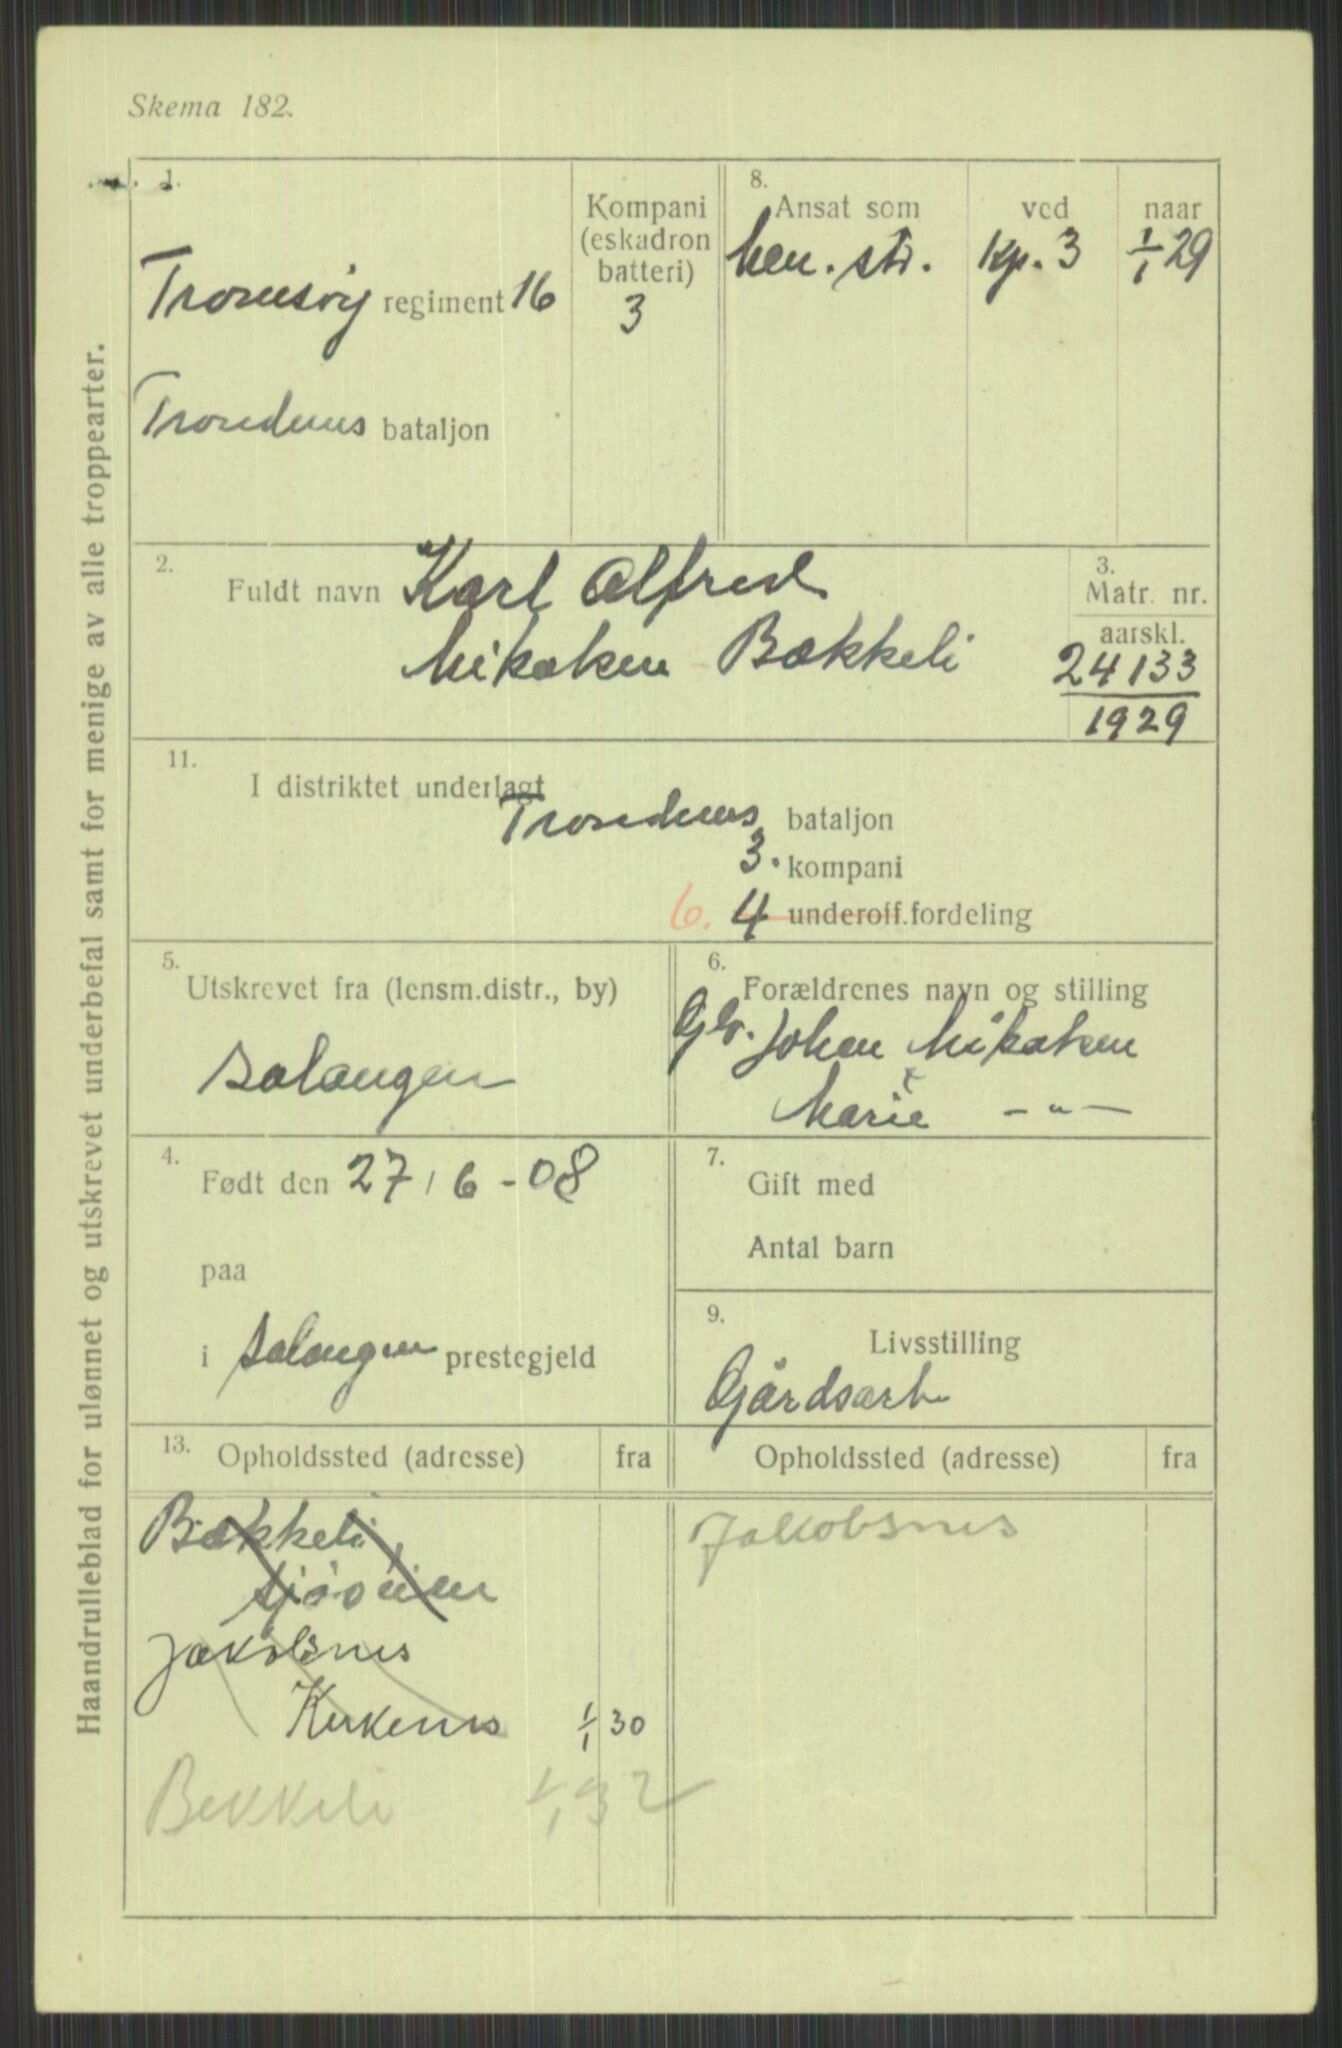 Skema 182.
Haandrulleblad for ulønnet og utskrevet underbefal samt for menige av alle troppearter.
1.
Tromsøy regiment 16
Trondenes bataljon
Kompani
(eskadron
batteri)
3
8.
Ansat som ved naar
Men. str. Kp. 3 1/1 29
2.
Fuldt navn Karl Alfred
Mikalsen Bakkeli
3.
Matr. nr.
aarskl.
24133
1929
11.
I distriktet underlagt
Trondenes bataljon
3. kompani
6. 4 underoff.fordeling
5.
Utskrevet fra (lensm.distr., by)
Salangen
6.
Forældrenes navn og stilling
Gbr. Johan Mikalsen
x
Marie — " —
4.
Født den 27/6-08
paa
i Salangen prestegjeld
7.
Gift med
Antal barn
9.
Livsstilling
Gårdsarb
13.
Opholdssted (adresse) fra
Bakkeli
Sjøveien
Jakobsnes
Kirkenes 1/1 30
Bekkeli 1/1 32
Opholdssted (adresse) fra
Jakobsnes